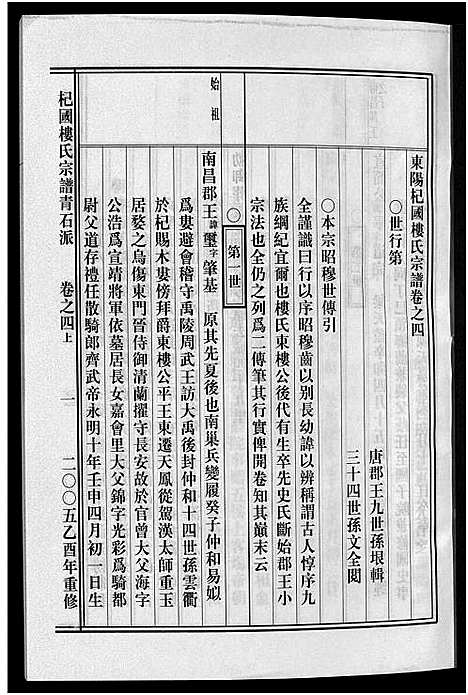 東陽杞國樓氏宗譜卷之四
○世行第
唐郡王九世孫垠輯
三十四世孫文全閱
○本宗昭穆世傳引
全謹識曰行以序昭穆齒以別長幼諱以辨稱謂古人惇序九
族綱紀宜爾也樓氏東樓公後代有生卒先史氏斷始郡王小
宗法也全仍之列爲二傳筆其行實俾開卷知其巔末云
○
第一世
始祖
南昌郡王諱璽字肇基 原其先夏後也南巢兵變履癸子仲和易姒
爲婁遊會稽守禹陵周武王訪大禹後封仲和十四世孫雲衢
於杞賜木婁榜拜爵東樓公平王東遷天鳳從駕漢太師重玉
居婺之烏傷東門晉侍御清蘭擢守長安故於官曾大父海字
公浩爲宣靖將軍依墓居長女嘉會里大父錦字光彩爲騎都
尉父道存禮任散騎郎齊武帝永明十年壬申四月初一日生
杞國樓氏宗譜青石派 卷之四上 一 二○○五乙酉年重修